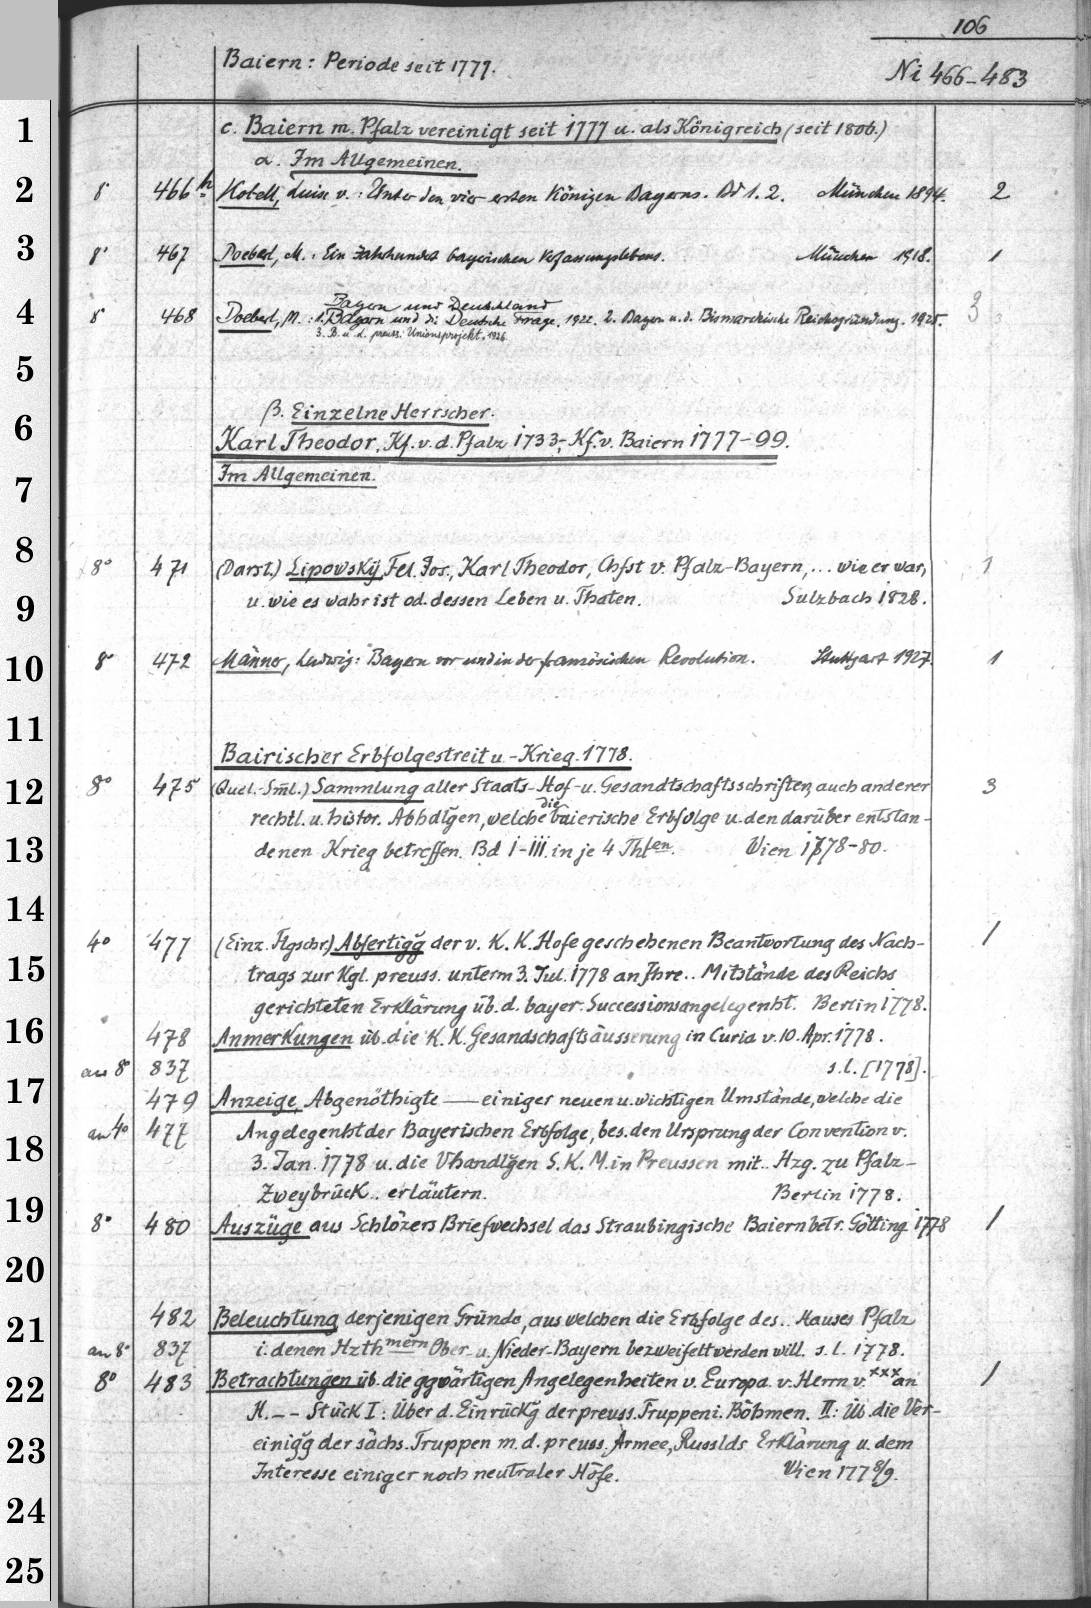 106
Baiern: Periode seit 1777.
Ni 466-483
1
c. Baiern m. Pfalz vereinigt seit 1777 u. als Königreich (seit 1806.)
α. Im Allgemeinen.
2 8° 466 h Kobell, Luise v.: Unter den vier ersten Königen Bayerns. Bd 1. 2. München 1894. 2
3 8° 467 Doeberl, M.: Ein Jahrhundert bayerischen Verfassungslebens. München 1918. 1
Bayern und Deutschland
4 8° 468 Doeberl, M.: 1. Bayern und die Deutsche Frage. 1922. 2. Bayern u. d. Bismarckische Reichsgründung. 1925. 3 3
3. B. u. d. preuss. Unionsprojekt. 1926.
5
β. Einzelne Herrscher.
6 Karl Theodor, Kf. v. d. Pfalz 1733, Kf. v. Baiern 1777-99.
7 Im Allgemeinen.
8 8° 471 (Darst.) Lipowskÿ, Fel. Jos., Karl Theodor, Chfst v. Pfalz-Bayern, ... wie er war,
9 u. wie es wahr ist od. dessen Leben u. Thaten. Sulzbach 1828. 1
10 8° 472 Männer, Ludwig: Bayern vor und in der französischen Revolution. Stuttgart 1927. 1
11
Bairischer Erbfolgestreit u. -Krieg. 1778.
12 8° 475 (Quel.-Sml.) Sammlung aller Staats- Hof- u. Gesandtschaftsschriften, auch anderer 3
rechtl. u. histor. Abhdlgen, welche die baierische Erbfolge u. den darüber entstan-
13 denen Krieg betreffen. Bd I-III. in je 4 Thlen. Wien 1778-80.
14
4° 477 (Einz. Flgschr.) Abfertigg der v. K. K. Hofe geschehenen Beantwortung des Nach- 1
15 trags zur Kgl. preuss. unterm 3. Jul. 1778 an Ihre .. Mitstände des Reichs
gerichteten Erklärung üb. d. bayer. Successionsangelegenht. Berlin 1778.
16 478 Anmerkungen üb. die K. K. Gesandschaftsäusserung in Curia v. 10. Apr. 1778.
an 8° 837 s. l. [1778].
17 479 Anzeige, Abgenöthigte — einiger neuen u. wichtigen Umstände, welche die
an 4° 477 Angelegenht der Bayerischen Erbfolge, bes. den Ursprung der Convention v.
18 3. Jan. 1778 u. die Vhandlgen S. K. M. in Preussen mit .. Hzg. zu Pfalz-
Zweybrück .. erläutern. Berlin 1778.
19 8° 480 Auszüge aus Schlözers Briefwechsel das Straubingische Baiern betr. Götting. 1778 1
20
482 Beleuchtung derjenigen Gründe, aus welchen die Erbfolge des .. Hauses Pfalz
21 an 8° 837 i. denen Hzthmern Ober- u. Nieder-Bayern bezweifelt werden will. s. l. 1778.
22 8° 483 Betrachtungen üb. die ggwärtigen Angelegenheiten v. Europa v. Herrn v. *** an 1
H. -- Stück I: Über d. Einrückg der preuss. Truppen i. Böhmen. II: Üb. die Ver-
23 einigg der sächs. Truppen m. d. preuss. Armee, Russlds Erklärung u. dem
Interesse einiger noch neutraler Höfe. Wien 1778/9.
24
25